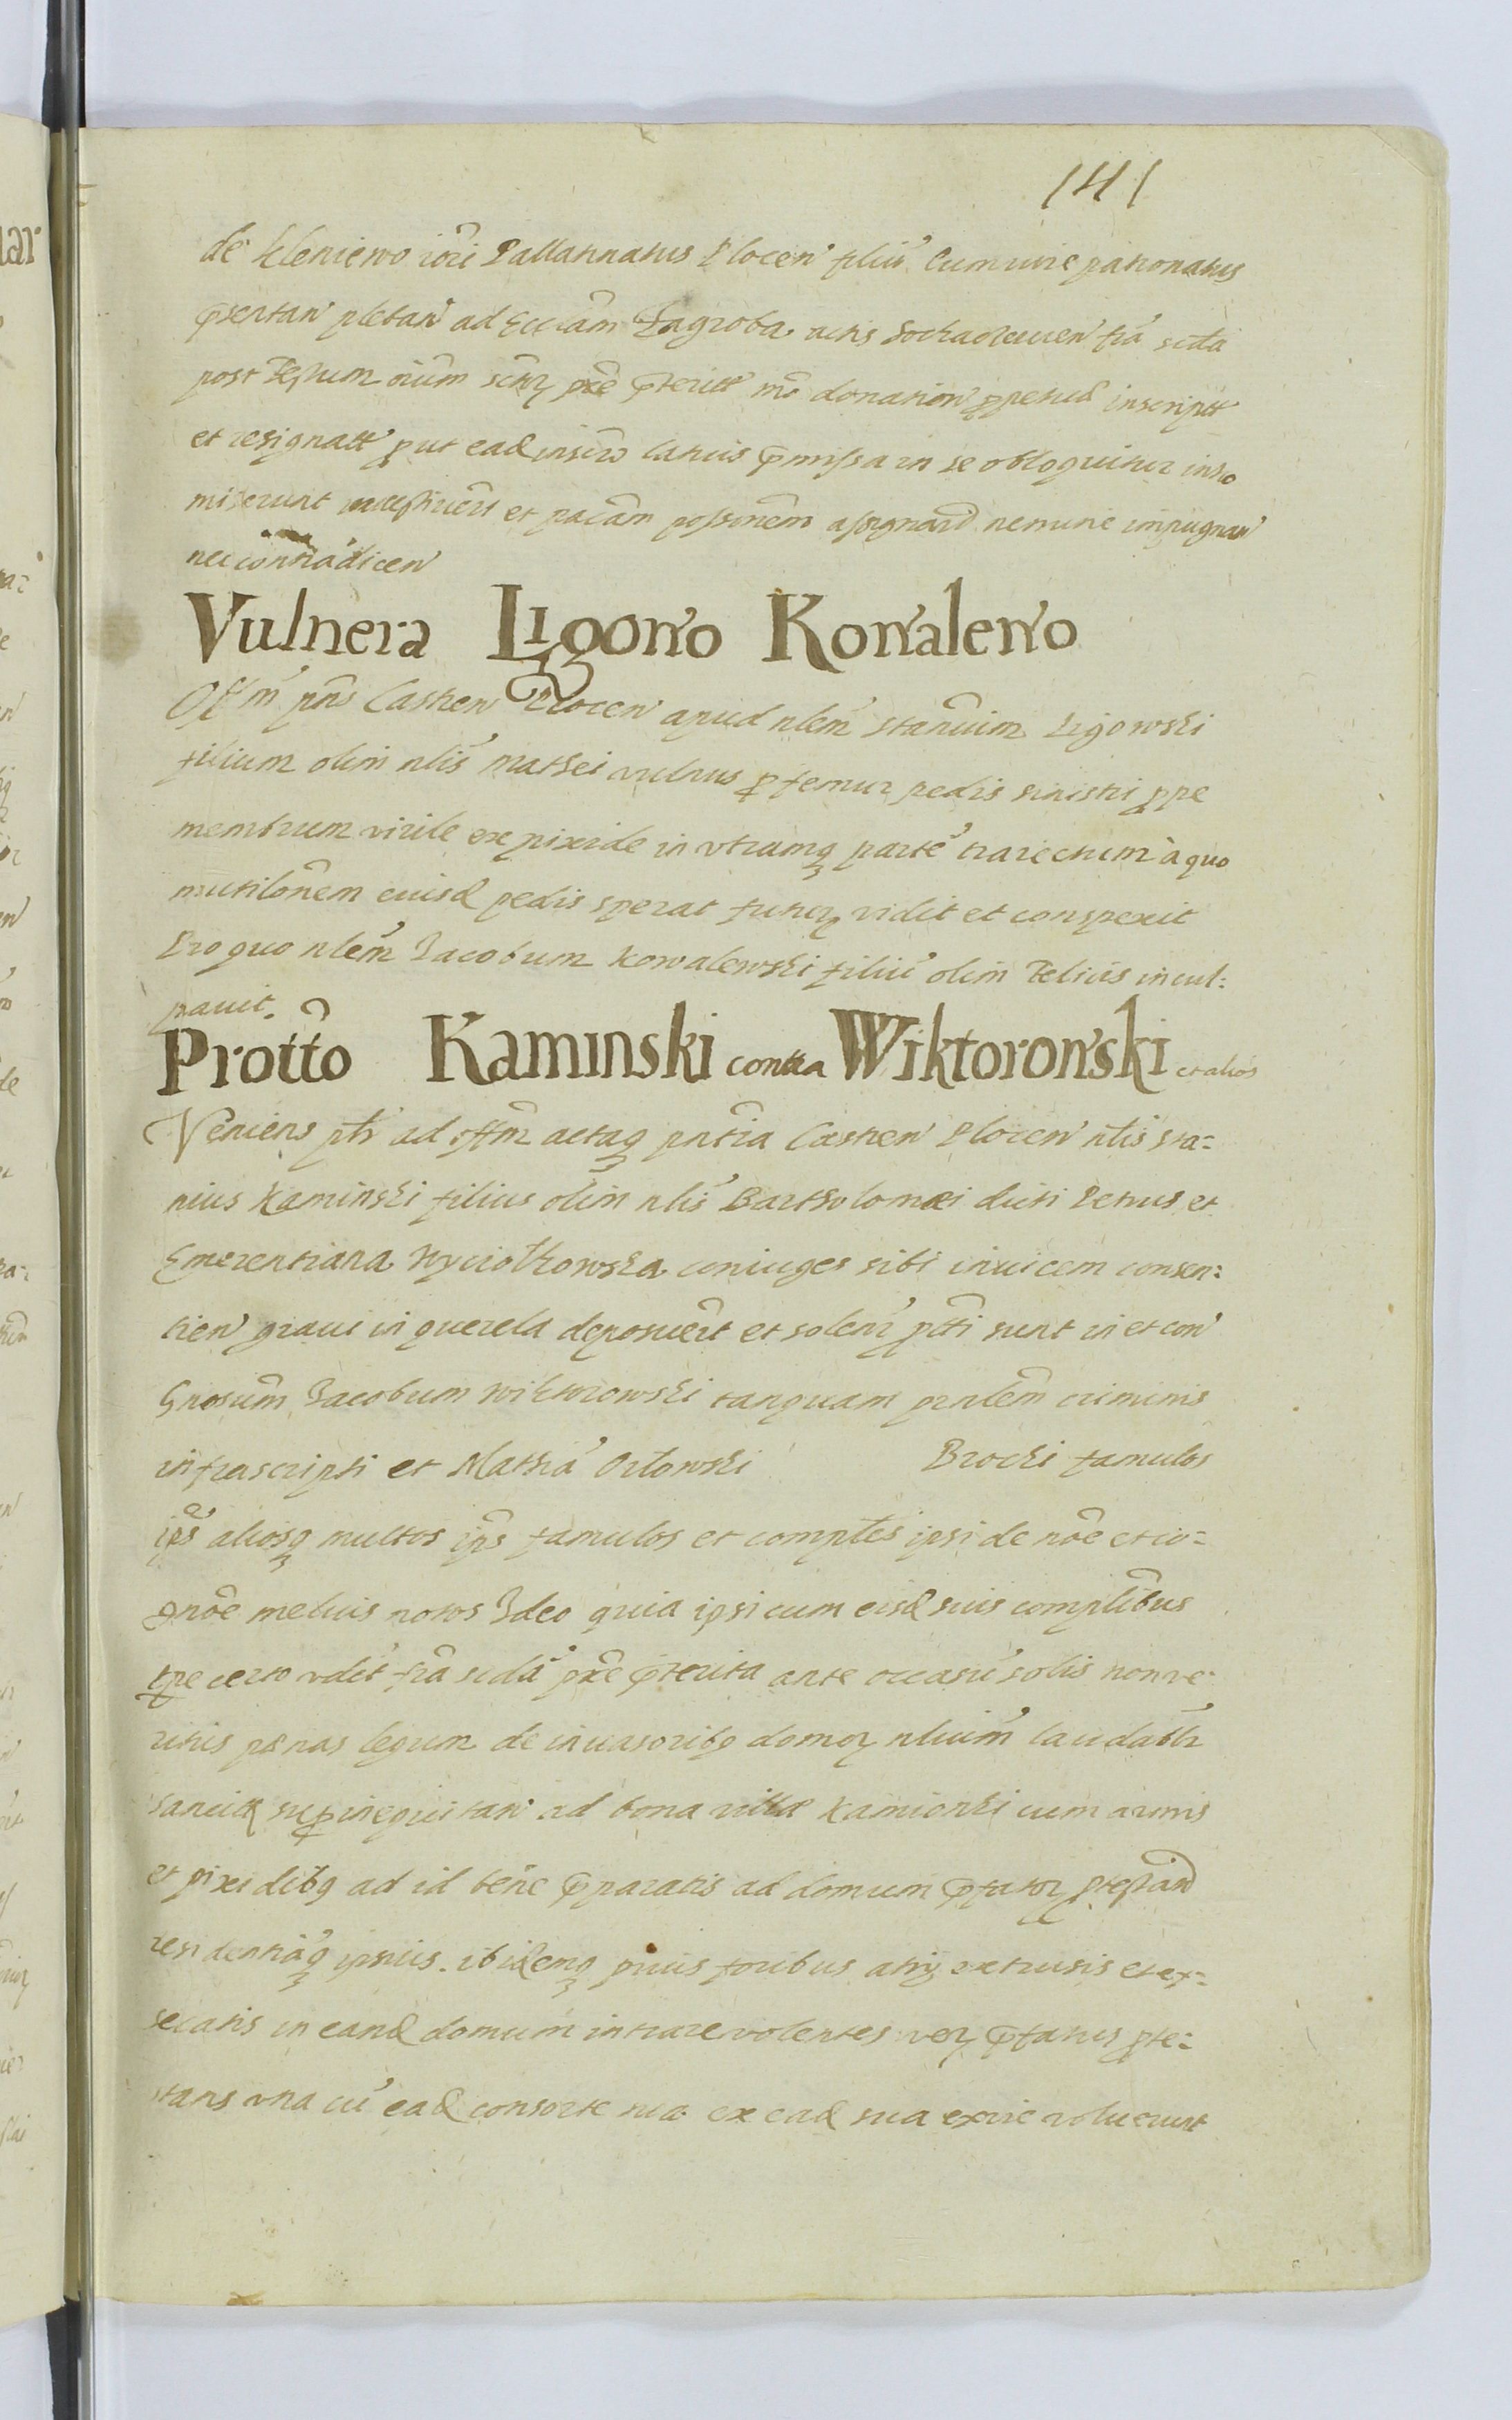 141
de Kleniewo iori Pallatinatus Plocen filiu Cum iure patronatus
psentan pletan ad Ecclam Zagroba actis Sochaczeuien fia scda
post festum oium sctor pxe pterit mo donation ppetue inscriptt
et resignatt put ead inscro latius pmissa in se obloquitur intro
miserunt et pacam possionem assignard nemine impugnan
nec contradicen
Vulnera Ligowo Kowalewo
Offm pns Castren Plocen apud nlem Stanuim Ligowski
filium olim nlis Mathei vulnus p femur pedis sinistri ppe
membrum virile ex pixide in vtramq parte traiectum a quo
mutilonem eiusd pedis sperat futur vidit et conspexit
Pro quo nlem Jacobum Kowalewski filiu olim Felicis incul:
pauit.
Protto Kaminski contra Wiktorowski et alios
Veniens ptr ad offm actaq pntia Castren Plocen nlis Sta=
nius Kaminski filius olim nlis Bartholomæi dicti Petrus et
Emerentiana Wyciolkowska coniuges sibi inuicem consen:
tien graui in querela deposuert et solenr ptti sunt in et con
Gnosum Jacobum Wiktorowski tanquam prnlem criminis
infrascripti et Mathia Orlowski Brocki famulos
ips aliosq multos ips famulos et complces ipsi de noe et co=
gnoe melius notos Ideo quia ipsi cum eisd suis complcibus
tpe certo vdct fia scda pxe pterita ante occasu solis non ve=
ritis pænas legum de inuasoribq domor nlium laudabtr
sancitt supinequitan ad bona villæ Kamienski cum armis
et pixidibq ad id bene pparatis ad domum pfator ptestand
residentiaq ipsius. ibidemq prius foribus atrij extrusis et ex=
secatis in eand domum intrare volentes ver pfatus pte=
stans vna cu ead consorte sua ex ead sua exire voluerunt